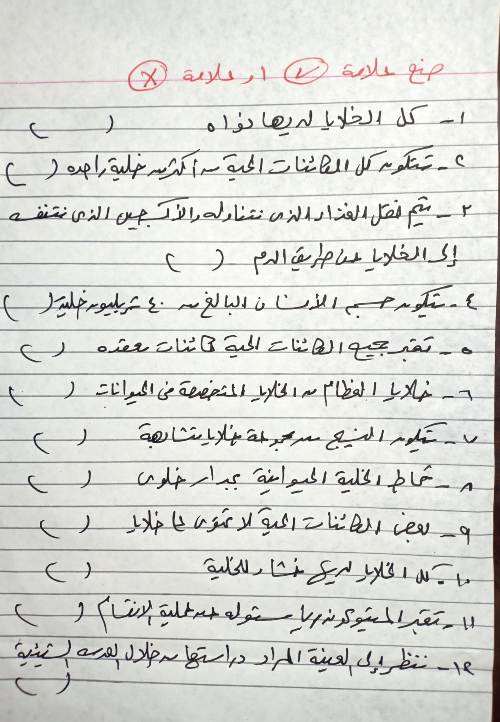 ضع علامة (✓) او علامة (X)
١- كل الخلايا لديها نواه ( )
٢- تتكون كل الكائنات الحية من أكثر من خلية واحده ( )
٣- يتم نقل الغذاء الذى نتناوله والأكسجين الذى نتنفسه
إلى الخلايا عن طريق الدم ( )
٤- يتكون جسم الأنسان البالغ من ٤٠ تريليون خلية ( )
٥- تعتبر جميع الكائنات الحية كائنات معقده ( )
٦- خلايا العظام من الخلايا المتخصصة فى الحيوانات ( )
٧- يتكون النسيج من مجموعة خلايا متشابهة ( )
٨- تحاط الخلية الحيوانية بجدار خلوى ( )
٩- بعض الكائنات الحية لا تحتوى على خلايا ( )
١٠- كل الخلايا لديها غشاء للخلية ( )
١١- تعتبر الميتوكوندريا مسئوله عن عملية الانقسام ( )
١٢- ننظر إلى العينة المراد دراستها من خلال العدسه الشيئية
( )